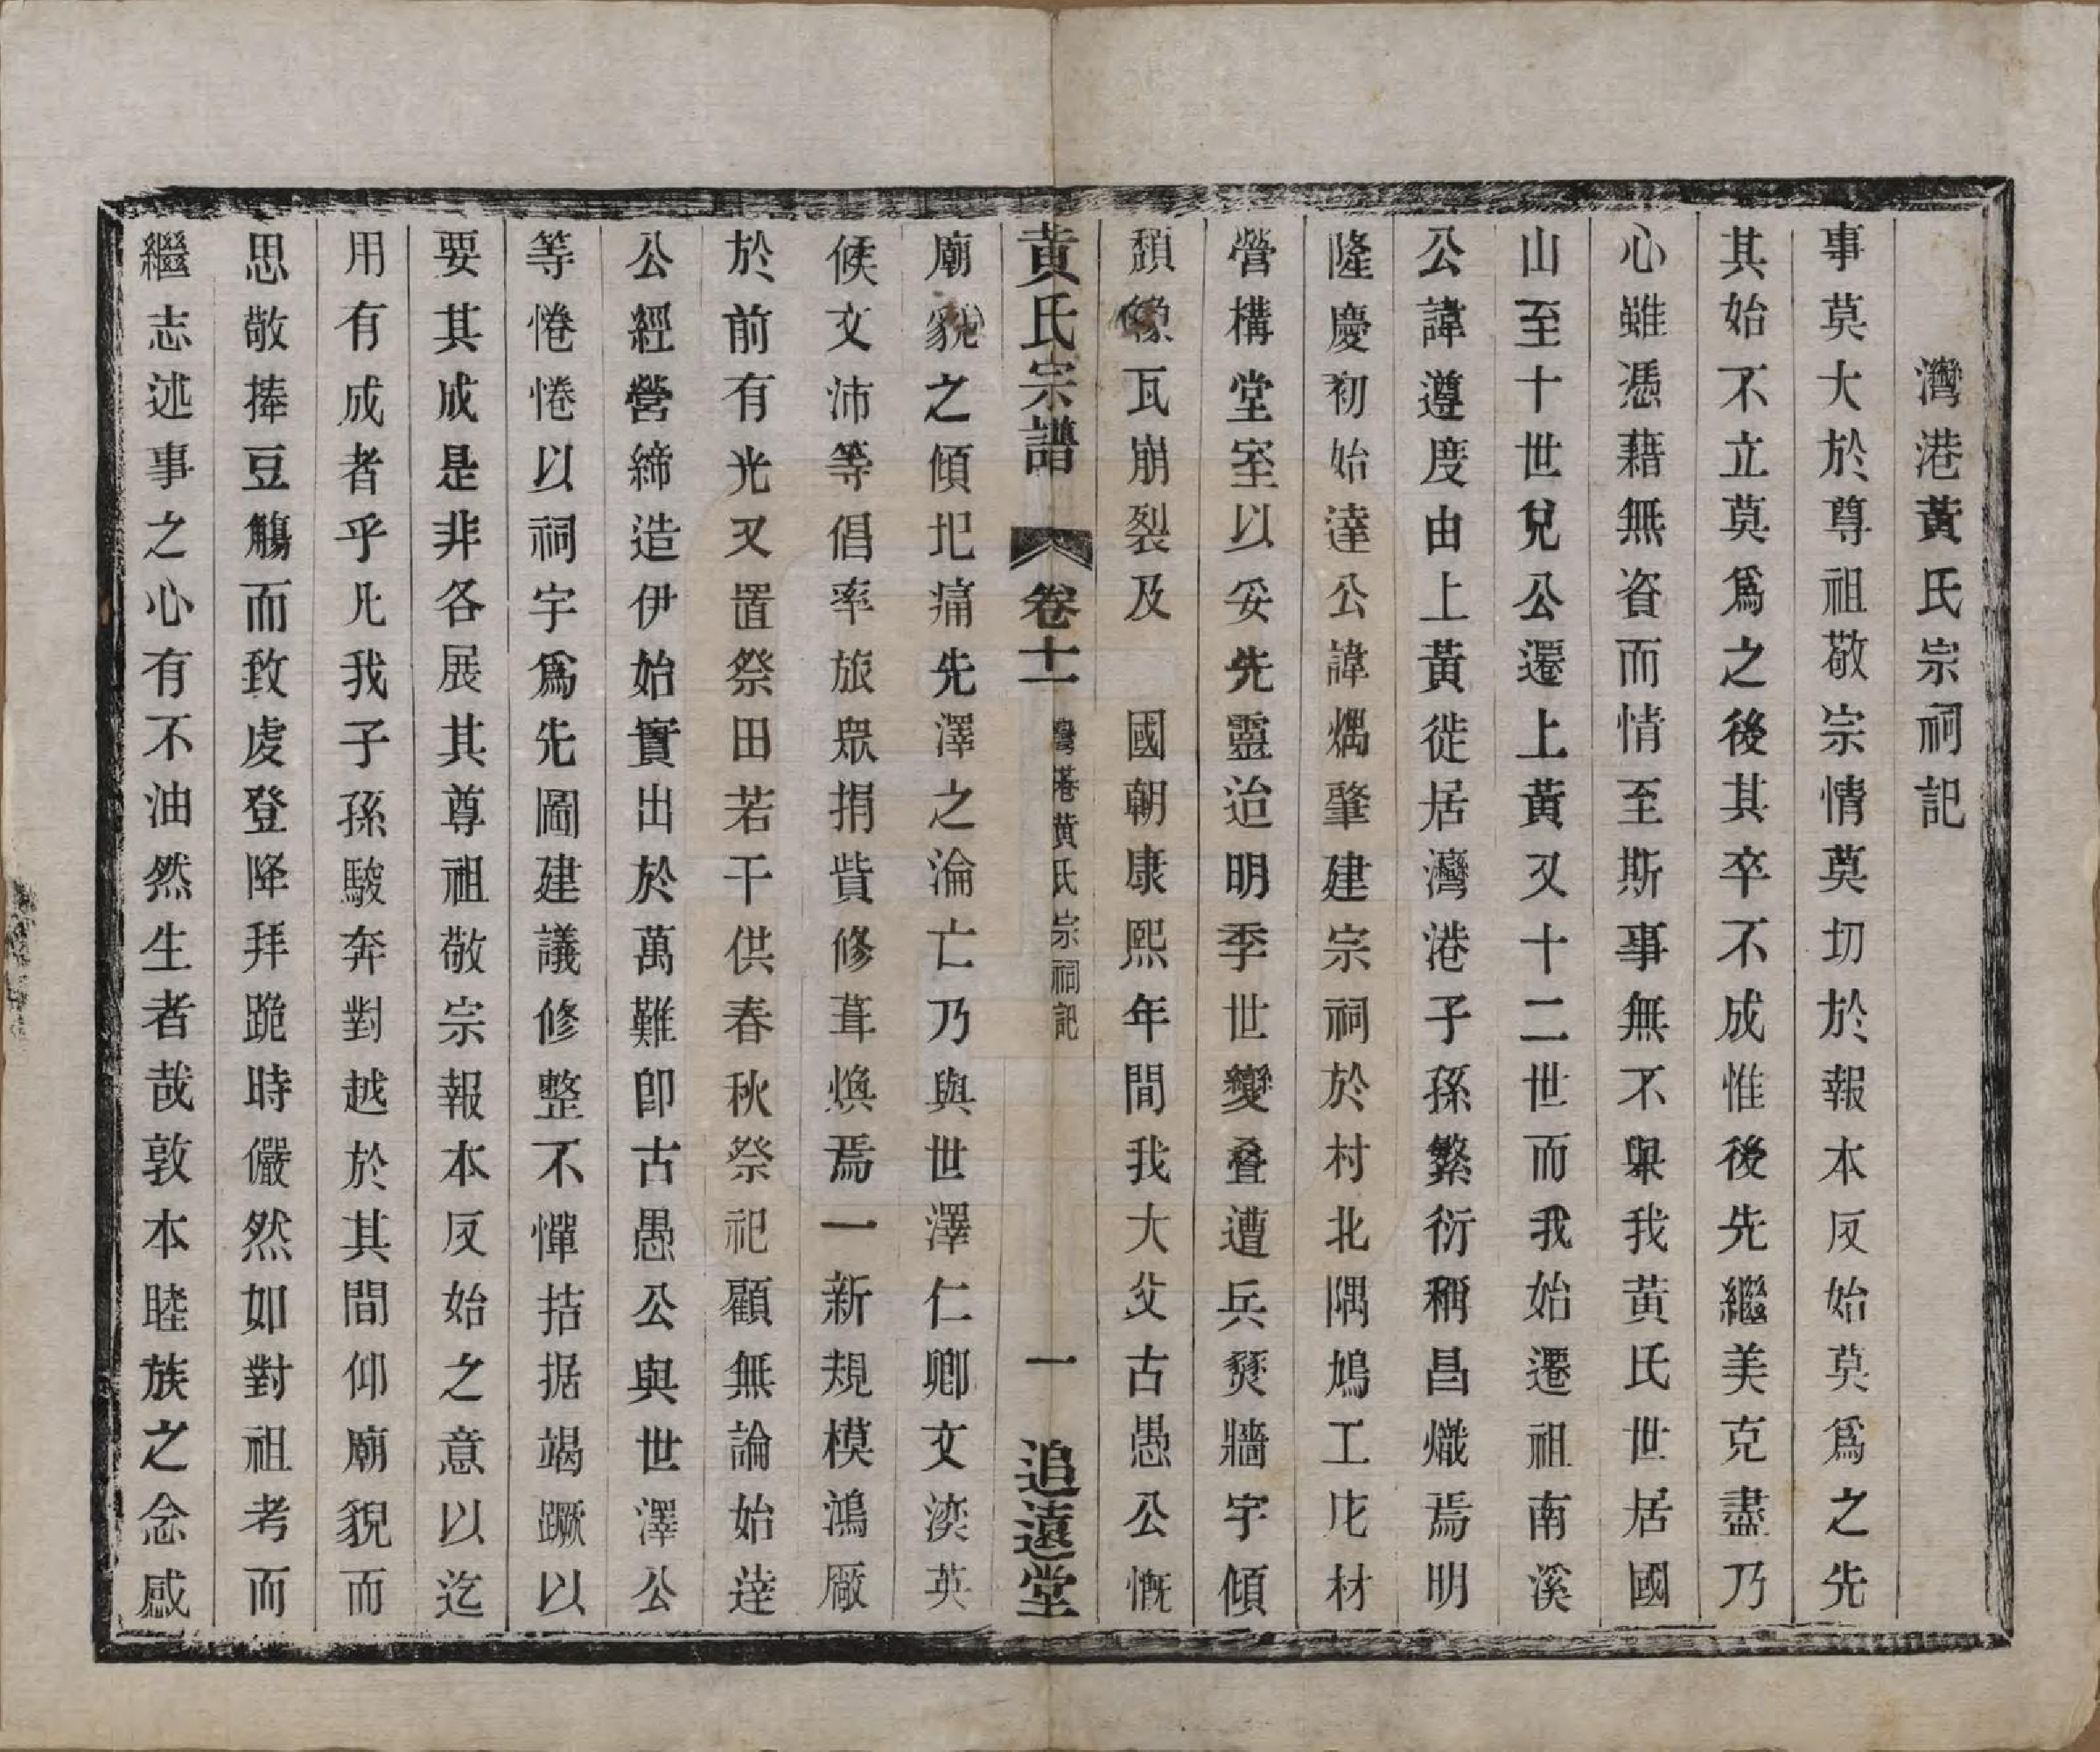 灣港黃氏宗祠記
事莫大於尊祖敬宗情莫切於報本反始莫爲之先
其始不立莫爲之後其卒不成惟後先繼美克盡乃
心雖憑藉無資而情至斯事無不舉我黃氏世居國
山至十世兌公遷上黃又十二世而我始遷祖南溪
公諱遵度由上黃徙居灣港子孫繁衍稱昌熾焉明
隆慶初始達公諱燆肇建宗祠於村北隅鳩工庀材
營構堂室以妥先靈迨明季世變叠遭兵燹牆宇傾
頹檐瓦崩裂及　國朝康熙年間我大父古愚公慨
黃氏宗譜　卷十一　灣港黃氏宗祠記　一　追遠堂
廟貌之傾圯痛先澤之淪亡乃與世澤仁卿文渶英
候文沛等倡率旅眾捐貲修葺煥焉一新規模鴻厰
於前有光又置祭田若干供春秋祭祀顧無論始達
公經營締造伊始實出於萬難即古愚公與世澤公
等惓惓以祠宇爲先圖建議修整不憚拮据竭蹶以
要其成是非各展其尊祖敬宗報本反始之意以迄
用有成者乎凡我子孫駿奔對越於其間仰廟貌而
思敬捧豆觴而致虔登降拜跪時儼然如對祖考而
繼志述事之心有不油然生者哉敦本睦族之念感